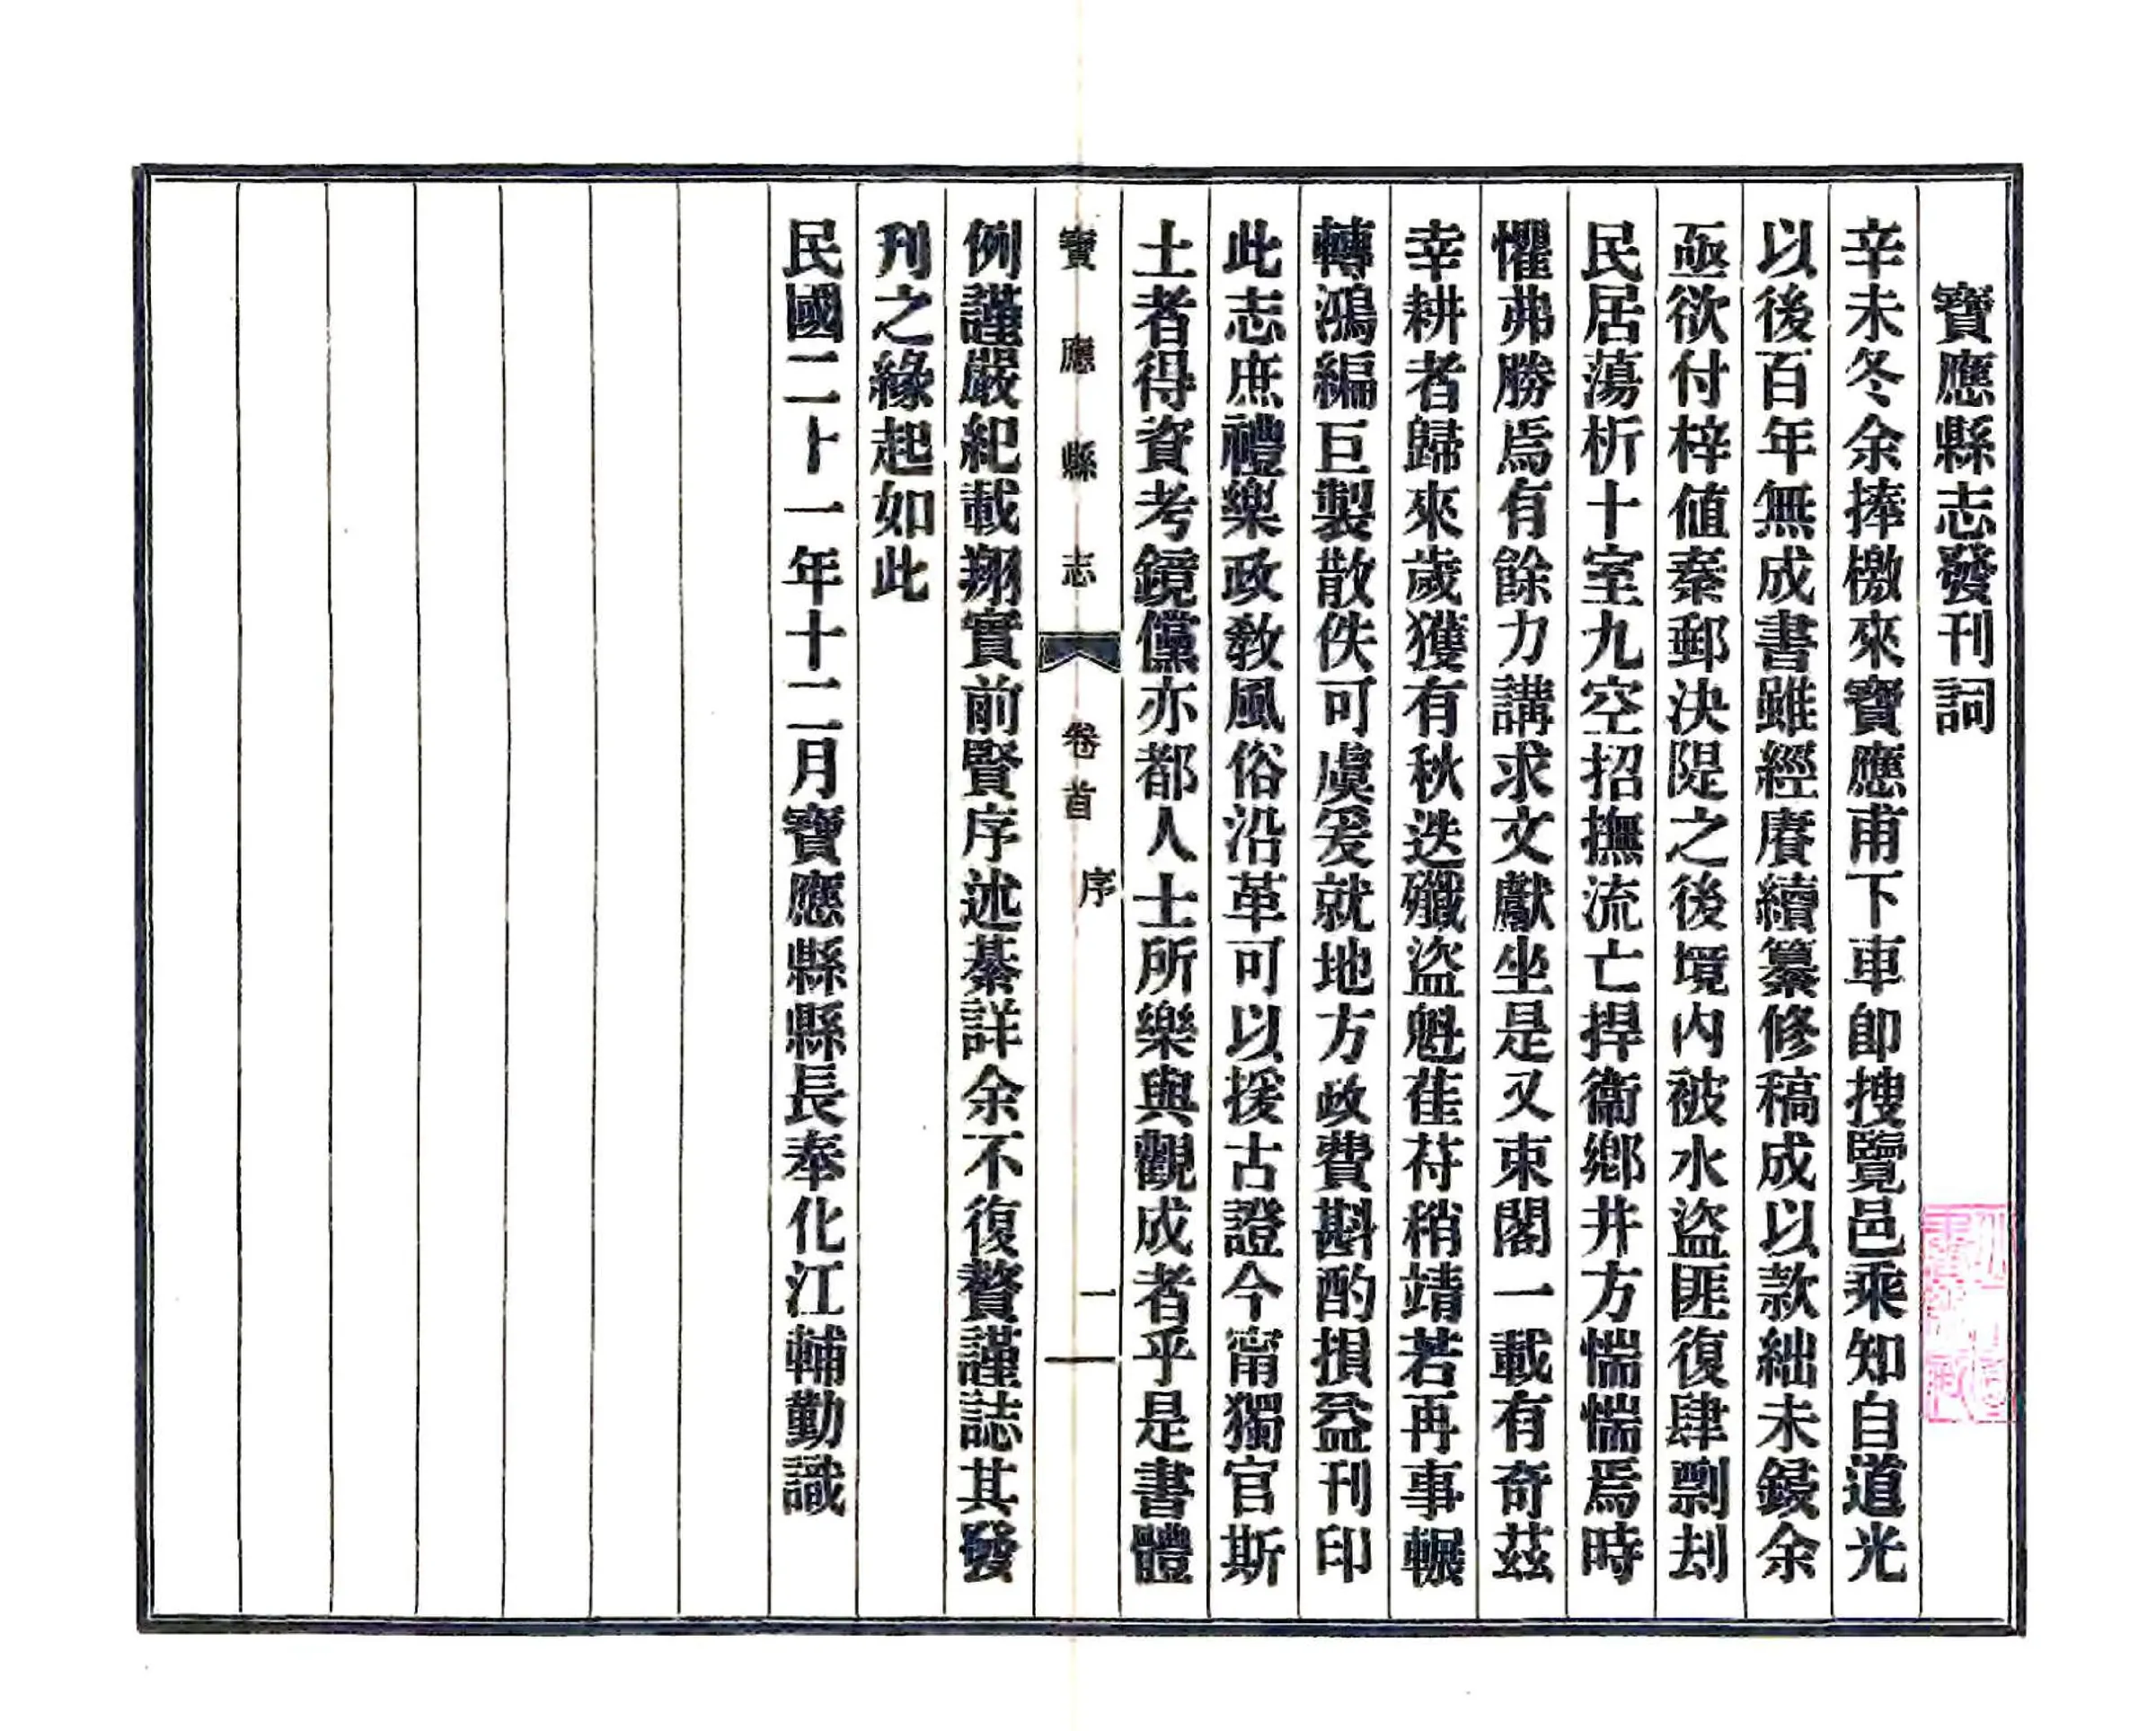 寶應縣志發刊詞
辛未冬余捧檄來寶應甫下車即搜覽邑乘知自道光
以後百年無成書雖經賡續纂修稿成以款絀未鋟余
亟欲付梓值秦郵決隄之後境內被水盜匪復肆剽刦
民居蕩析十室九空招撫流亡捍衞鄉井方惴惴焉時
懼弗勝焉有餘力講求文獻坐是又束閣一載有奇茲
幸耕者歸來歲獲有秋迭殲盜魁萑苻稍靖若再事輾
轉鴻編巨製散佚可虞爰就地方政費斟酌損益刊印
此志庶禮樂政敎風俗沿革可以援古證今甯獨官斯
土者得資考鏡儻亦都人士所樂與觀成者乎是書體
寶應縣志 卷首 序 一
例謹嚴紀載翔實前賢序述綦詳余不復贅謹誌其發
刊之緣起如此
民國二十一年十二月寶應縣縣長奉化江輔勤識